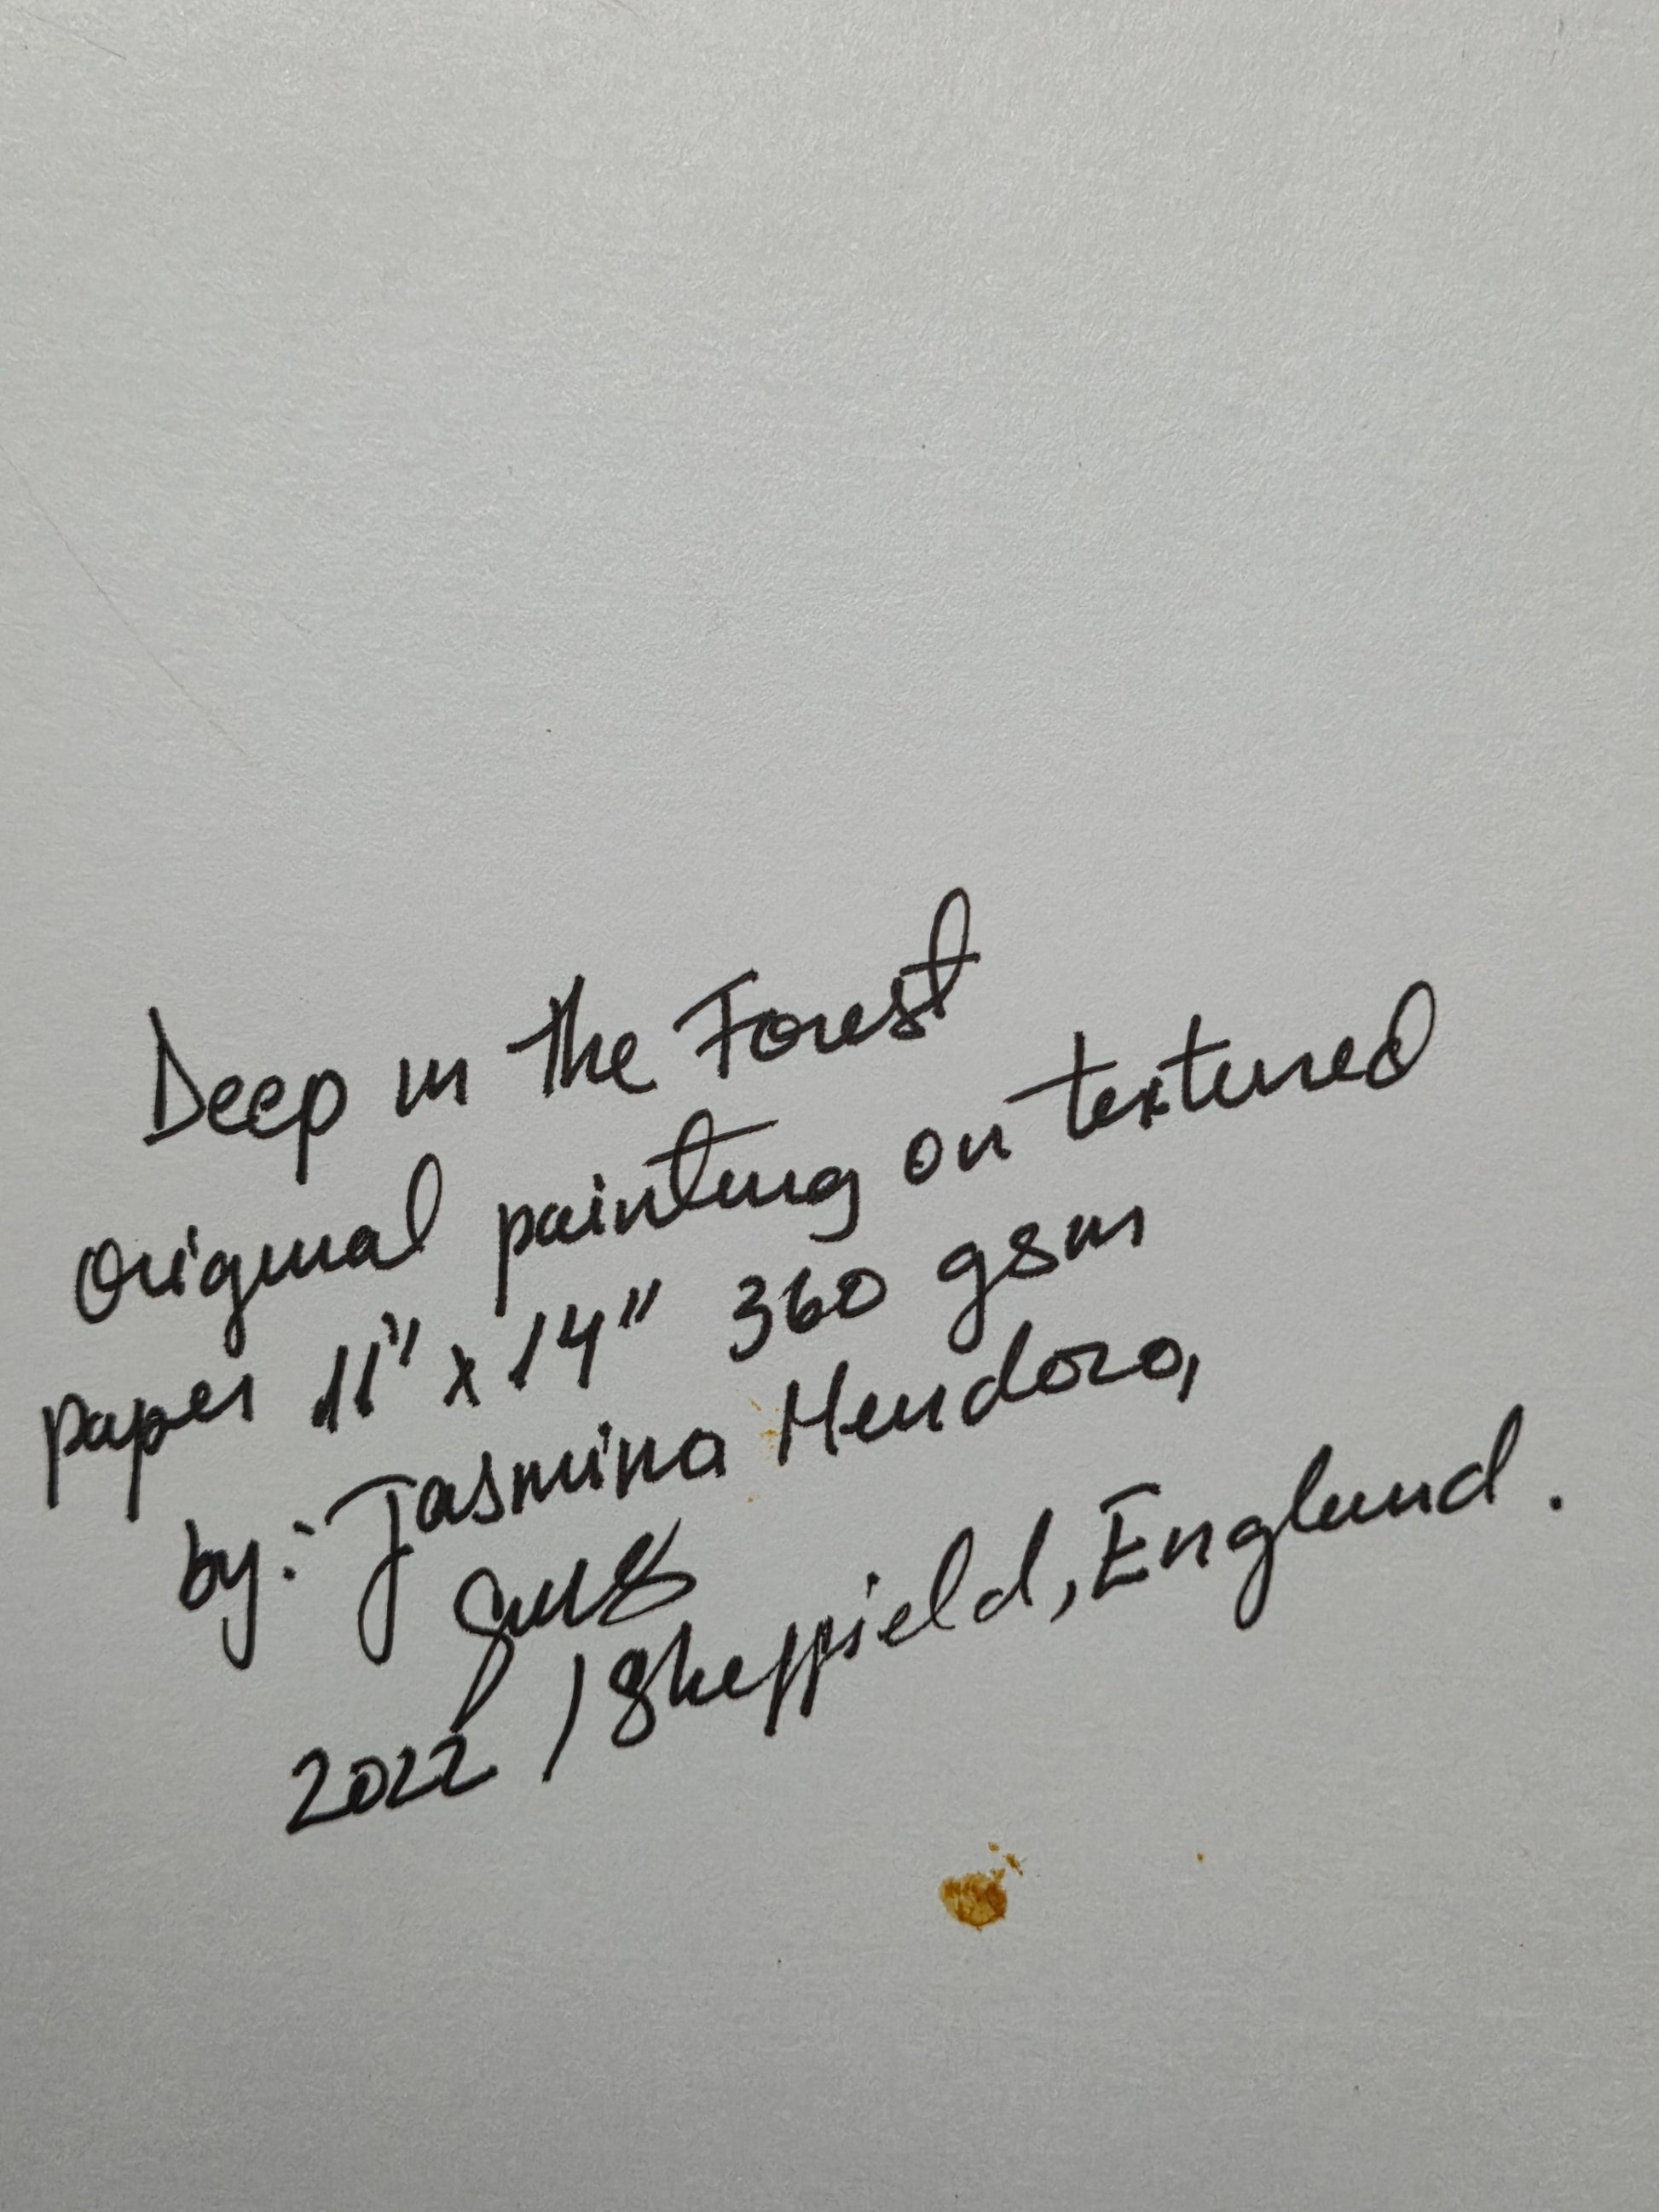 Deep in the Forest
Original painting on textured
paper 11" x 14" 360 gsm
by: Jasmina Mendoza,
2022 / Sheffield, England.